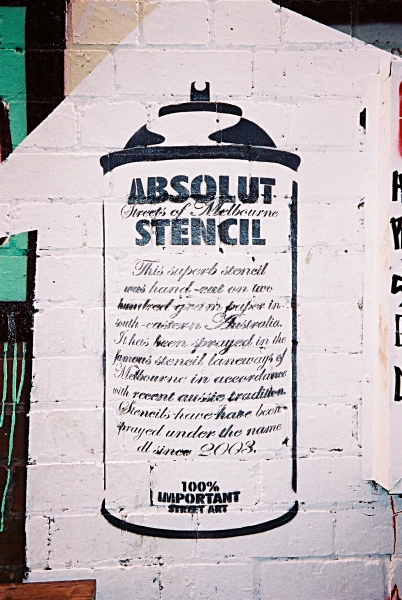 ABSOLUT
Streets of Melbourne
STENCIL
This superb stencil
was hand-cut on two
hundred gram paper in
south-eastern Australia.
It has been sprayed in the
famous stencil laneways of
Melbourne in accordance
with recent aussie tradition.
Stencils have have been
sprayed under the name
dl since 2003.
100%
IMPORTANT
STREET ART